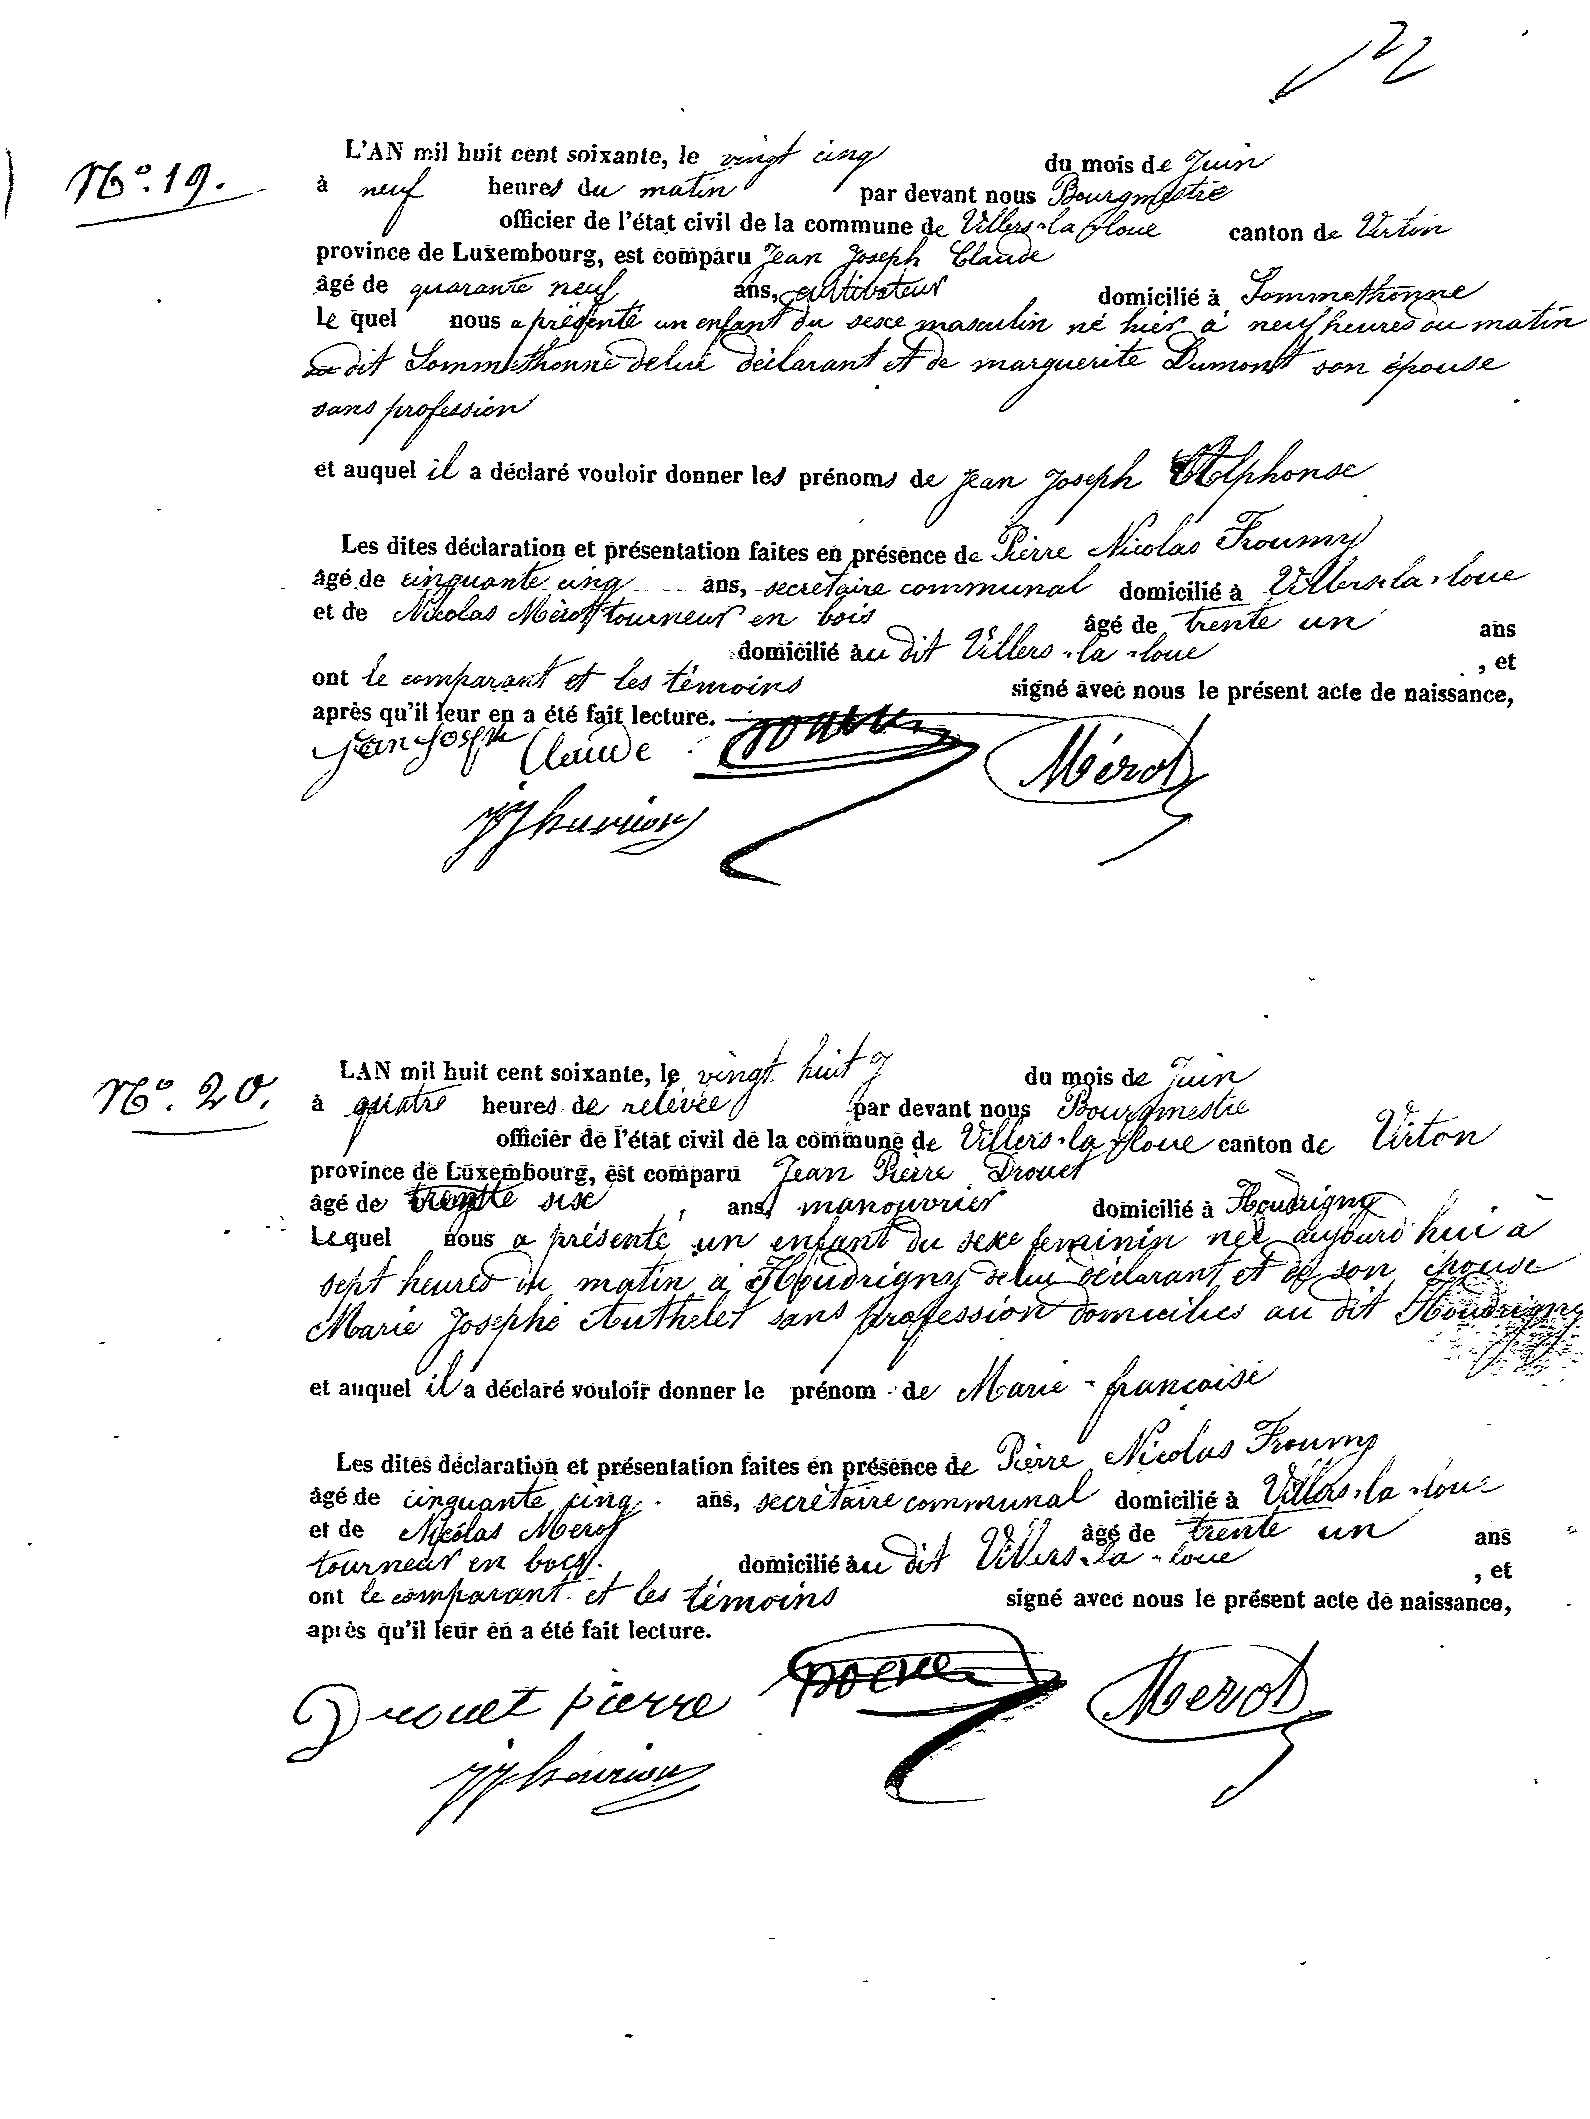 N°. 19.
L'AN mil huit cent soixante, le vingt cinq du mois de Juin
à neuf heures du matin par devant nous Bourgmestre
officier de l'état civil de la commune de Villers-la-Loue canton de Virton
province de Luxembourg, est comparu Jean Joseph Claude
âgé de quarante neuf ans, cultivateur domicilié à Sommethonne
Le quel nous a présenté un enfant du sexe masculin né hier à neuf heures du matin
au dit Sommethonne de lui déclarant et de marguerite Dumont son épouse
sans profession
et auquel il a déclaré vouloir donner les prénoms de Jean Joseph Alphonse
Les dites déclaration et présentation faites en présence de Pierre Nicolas Froumy
âgé de cinquante cinq ans, secrétaire communal domicilié à Villers-la-Loue
et de Nicolas Mérot tourneur en bois âgé de trente un ans
domicilié au dit Villers-la-Loue , et
ont le comparant et les témoins signé avec nous le présent acte de naissance,
après qu'il leur en a été fait lecture.
Jean Joseph Claude Mérot
N°. 20.
L'AN mil huit cent soixante, le vingt huit du mois de Juin
à quatre heures de relévée par devant nous Bourgmestre
officier de l'état civil de la commune de Villers-la-Loue canton de Virton
province de Luxembourg, est comparu Jean Pierre Drouet
âgé de trente six ans, manouvrier domicilié à Houdrigny
Lequel nous a présenté un enfant du sexe feminin neé aujourd'hui à
sept heures du matin à Houdrigny de lui déclarant et de son épouse
Marie Josephe Authelet sans profession domiciliés au dit Houdrigny
et auquel il a déclaré vouloir donner le prénom de Marie-françoise
Les dites déclaration et présentation faites en présence de Pierre Nicolas Froumy
âgé de cinquante cinq ans, secrétaire communal domicilié à Villers-la-Loue
et de Nicolas Merot âgé de trente un ans
tourneur en bois domicilié au dit Villers-la-Loue , et
ont le comparant et les témoins signé avec nous le présent acte de naissance,
après qu'il leur en a été fait lecture.
Drouet pierre Merot